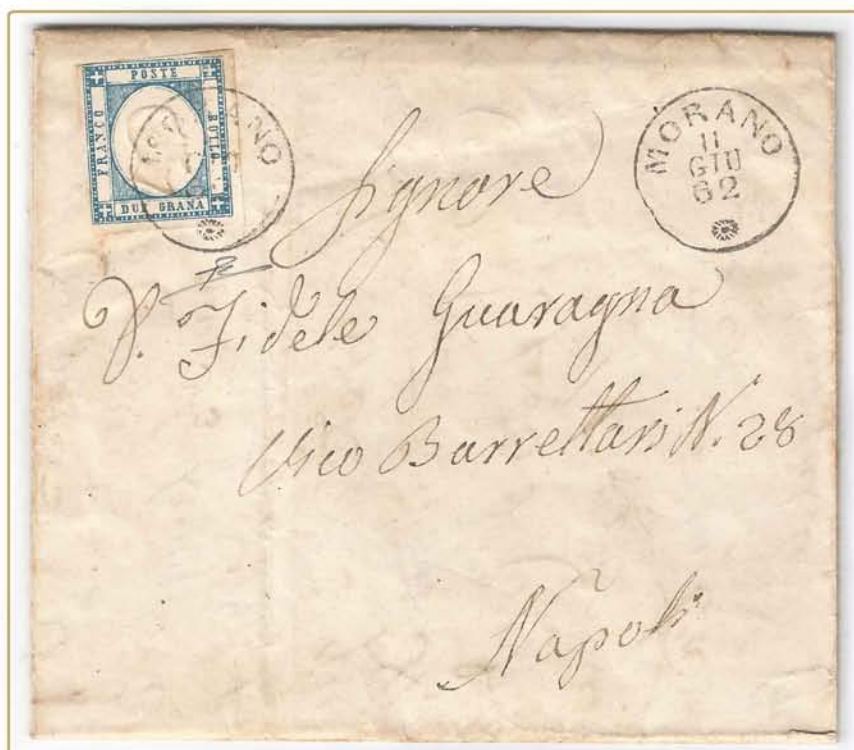 POSTE
FRANCO
BOLLO
DUE GRANA
MORANO
11
GIU
62
Signore
D. Fidele Guaragna
Vico Barrettari N. 28
Napoli